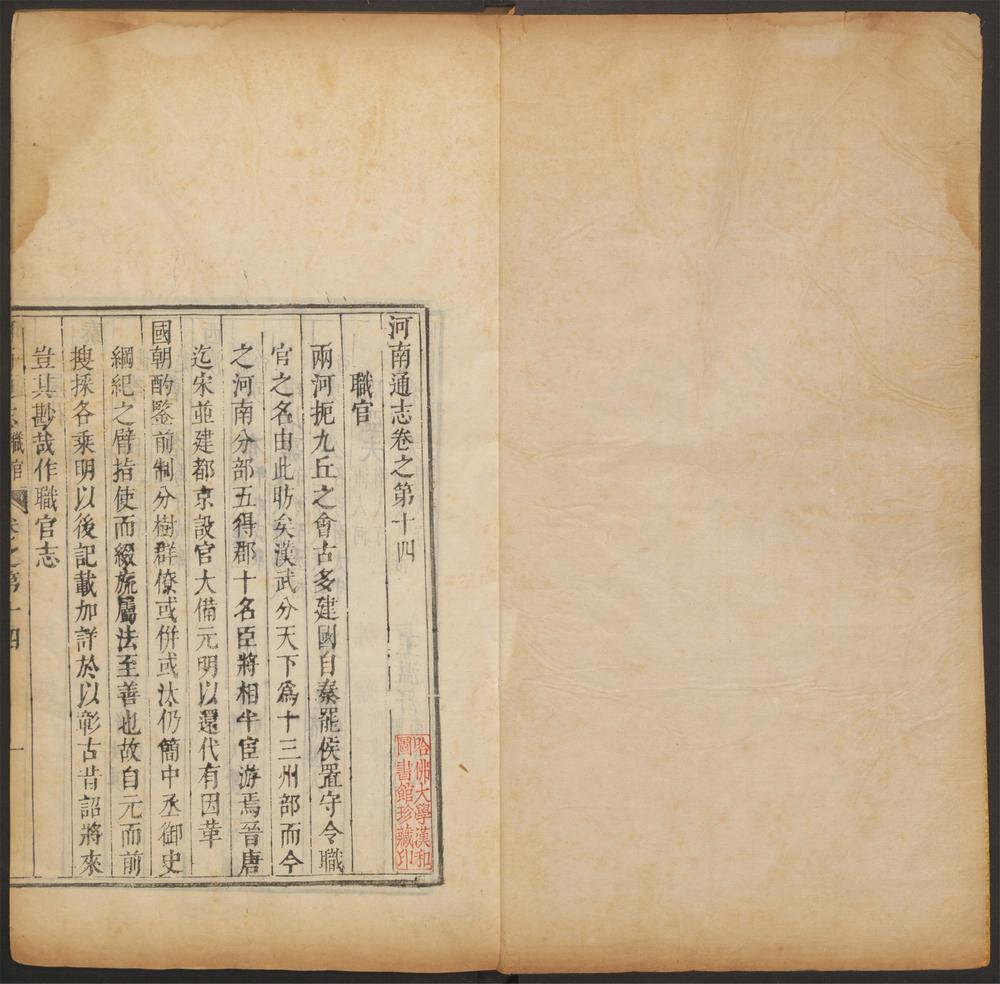 河南通志卷之第十四
職官
兩河扼九丘之會古多建國自秦罷侯置守令職
官之名由此昉矣漢武分天下爲十三州部而今
之河南分部五得郡十名臣將相半宦游焉晉唐
迄宋並建都京設官大備元明以還代有因革
國朝酌鍳前制分樹群僚或併或汰仍簡中丞御史
綱紀之臂指使而綴旒屬法至善也故自元而前
搜採各乘明以後記載加詳於以彰古昔詔將來
豈其尠哉作職官志
職官
卷之第十四
一
哈佛大學漢和
圖書館珍藏印